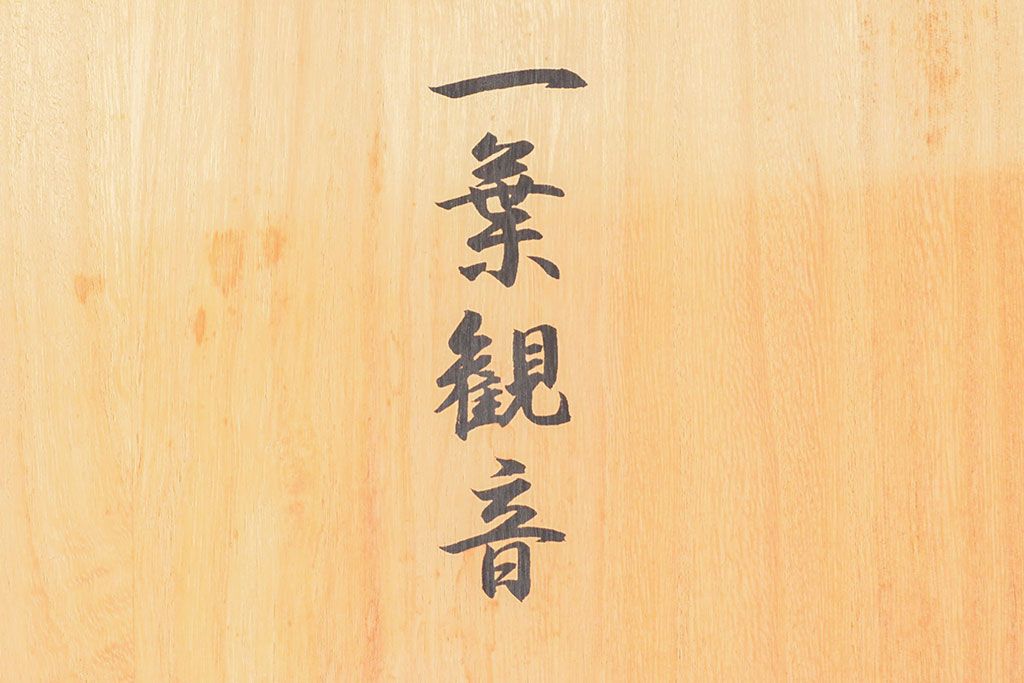 一葉観音